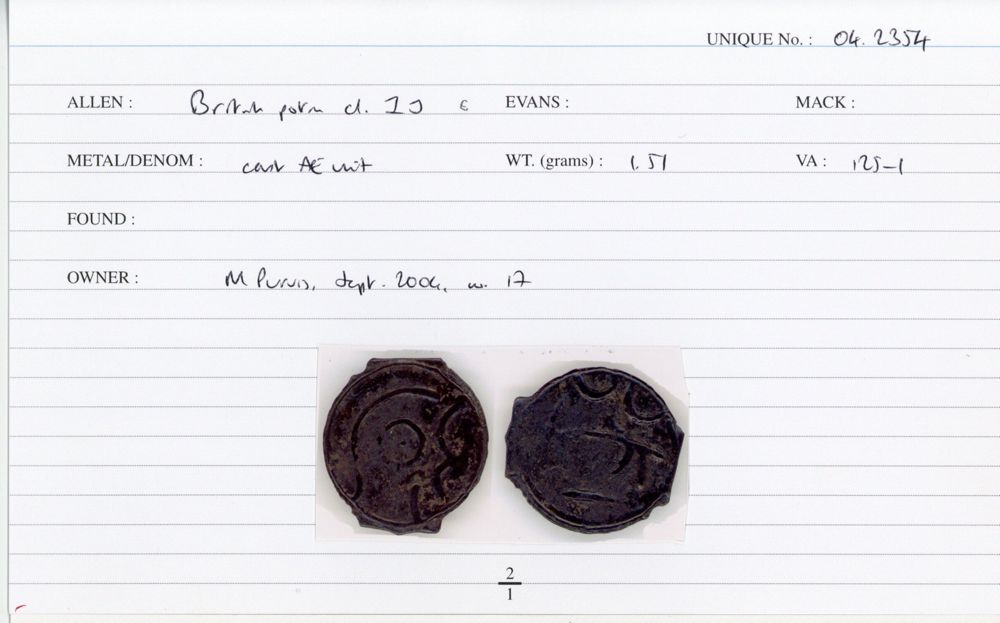 UNIQUE No. : 04. 2354
ALLEN : British potin cl. 1J € EVANS : MACK :
METAL/DENOM : cast AE unit WT. (grams) : 1.51 VA : 125-1
FOUND :
OWNER : M Purvis, Sept. 2004, w. 17
2
1